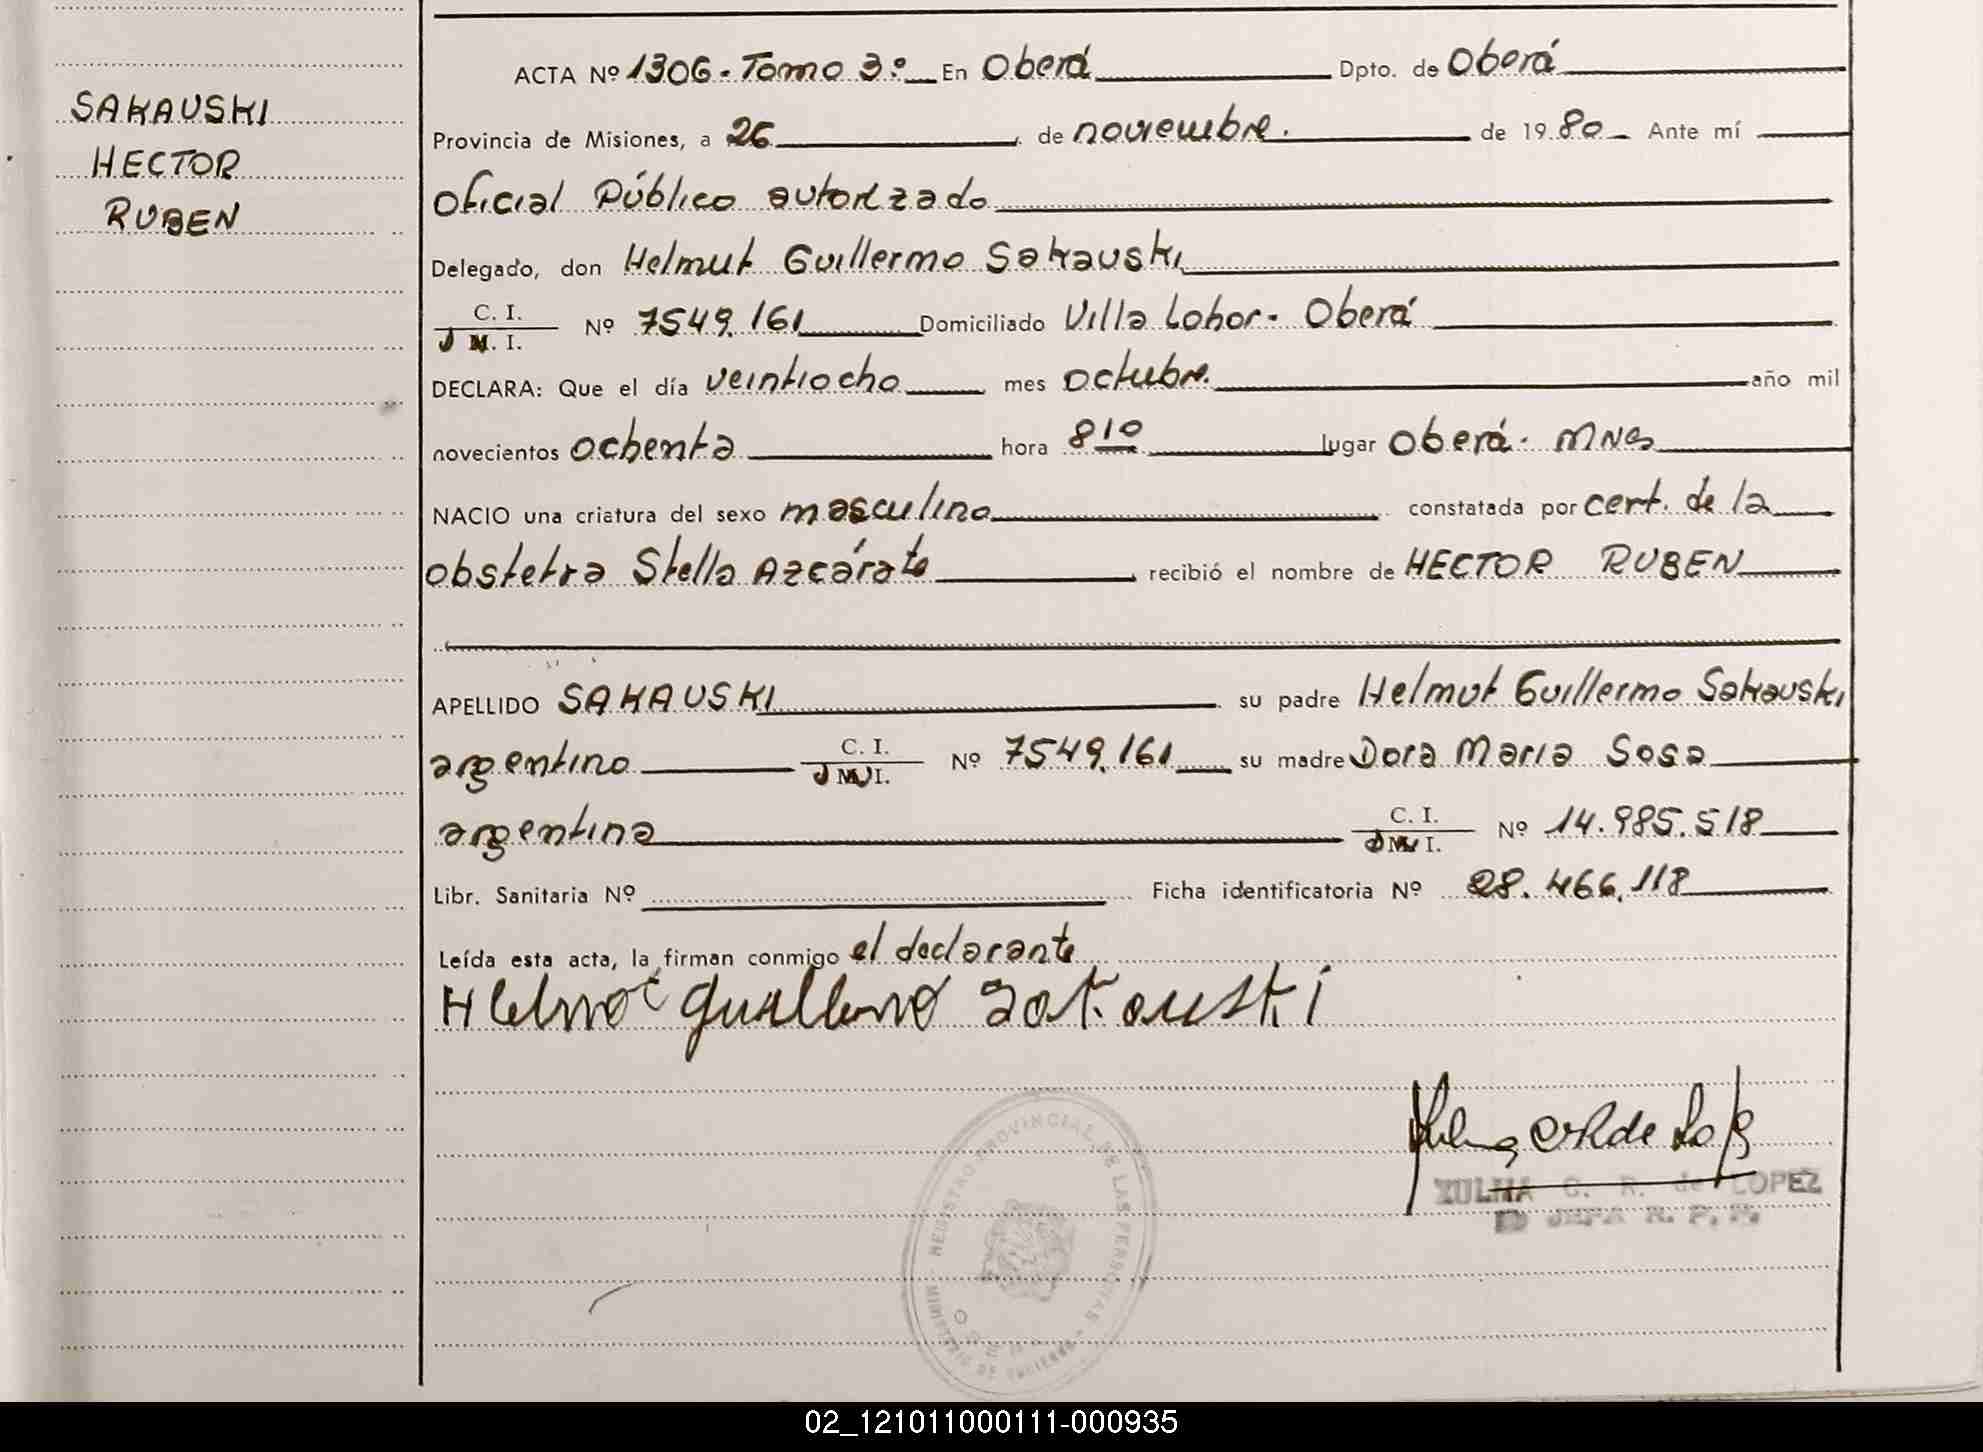 SAKAUSKI
HECTOR
RUBEN
ACTA Nº 1306 - Tomo 3º En Oberá Dpto. de Oberá
Provincia de Misiones, a 26 de noviembre. de 1980 Ante mí
Oficial Público autorizado
Delegado, don Helmut Guillermo Sakauski
C. I.
D M. I. Nº 7549.161 Domiciliado Villa Lohor - Oberá
DECLARA: Que el día veintiocho mes octubre. año mil
novecientos ochenta hora 8 10 lugar Oberá - Mnes
NACIO una criatura del sexo masculino constatada por cert. de la
obstetra Stella Azcárate recibió el nombre de HECTOR RUBEN
APELLIDO SAKAUSKI su padre Helmut Guillermo Sakauski
argentino C. I. D M. I. Nº 7549.161 su madre Dora Maria Sosa
argentina C. I. D M. I. Nº 14.985.518
Libr. Sanitaria Nº Ficha identificatoria Nº 28.466.118
Leída esta acta, la firman conmigo el declarante
Helmot Guillermo Sakauski
REGISTRO PROVINCIAL DE LAS PERSONAS
ZULMA C. R. de LOPEZ
JEFA R. P. P.
02_121011000111-000935